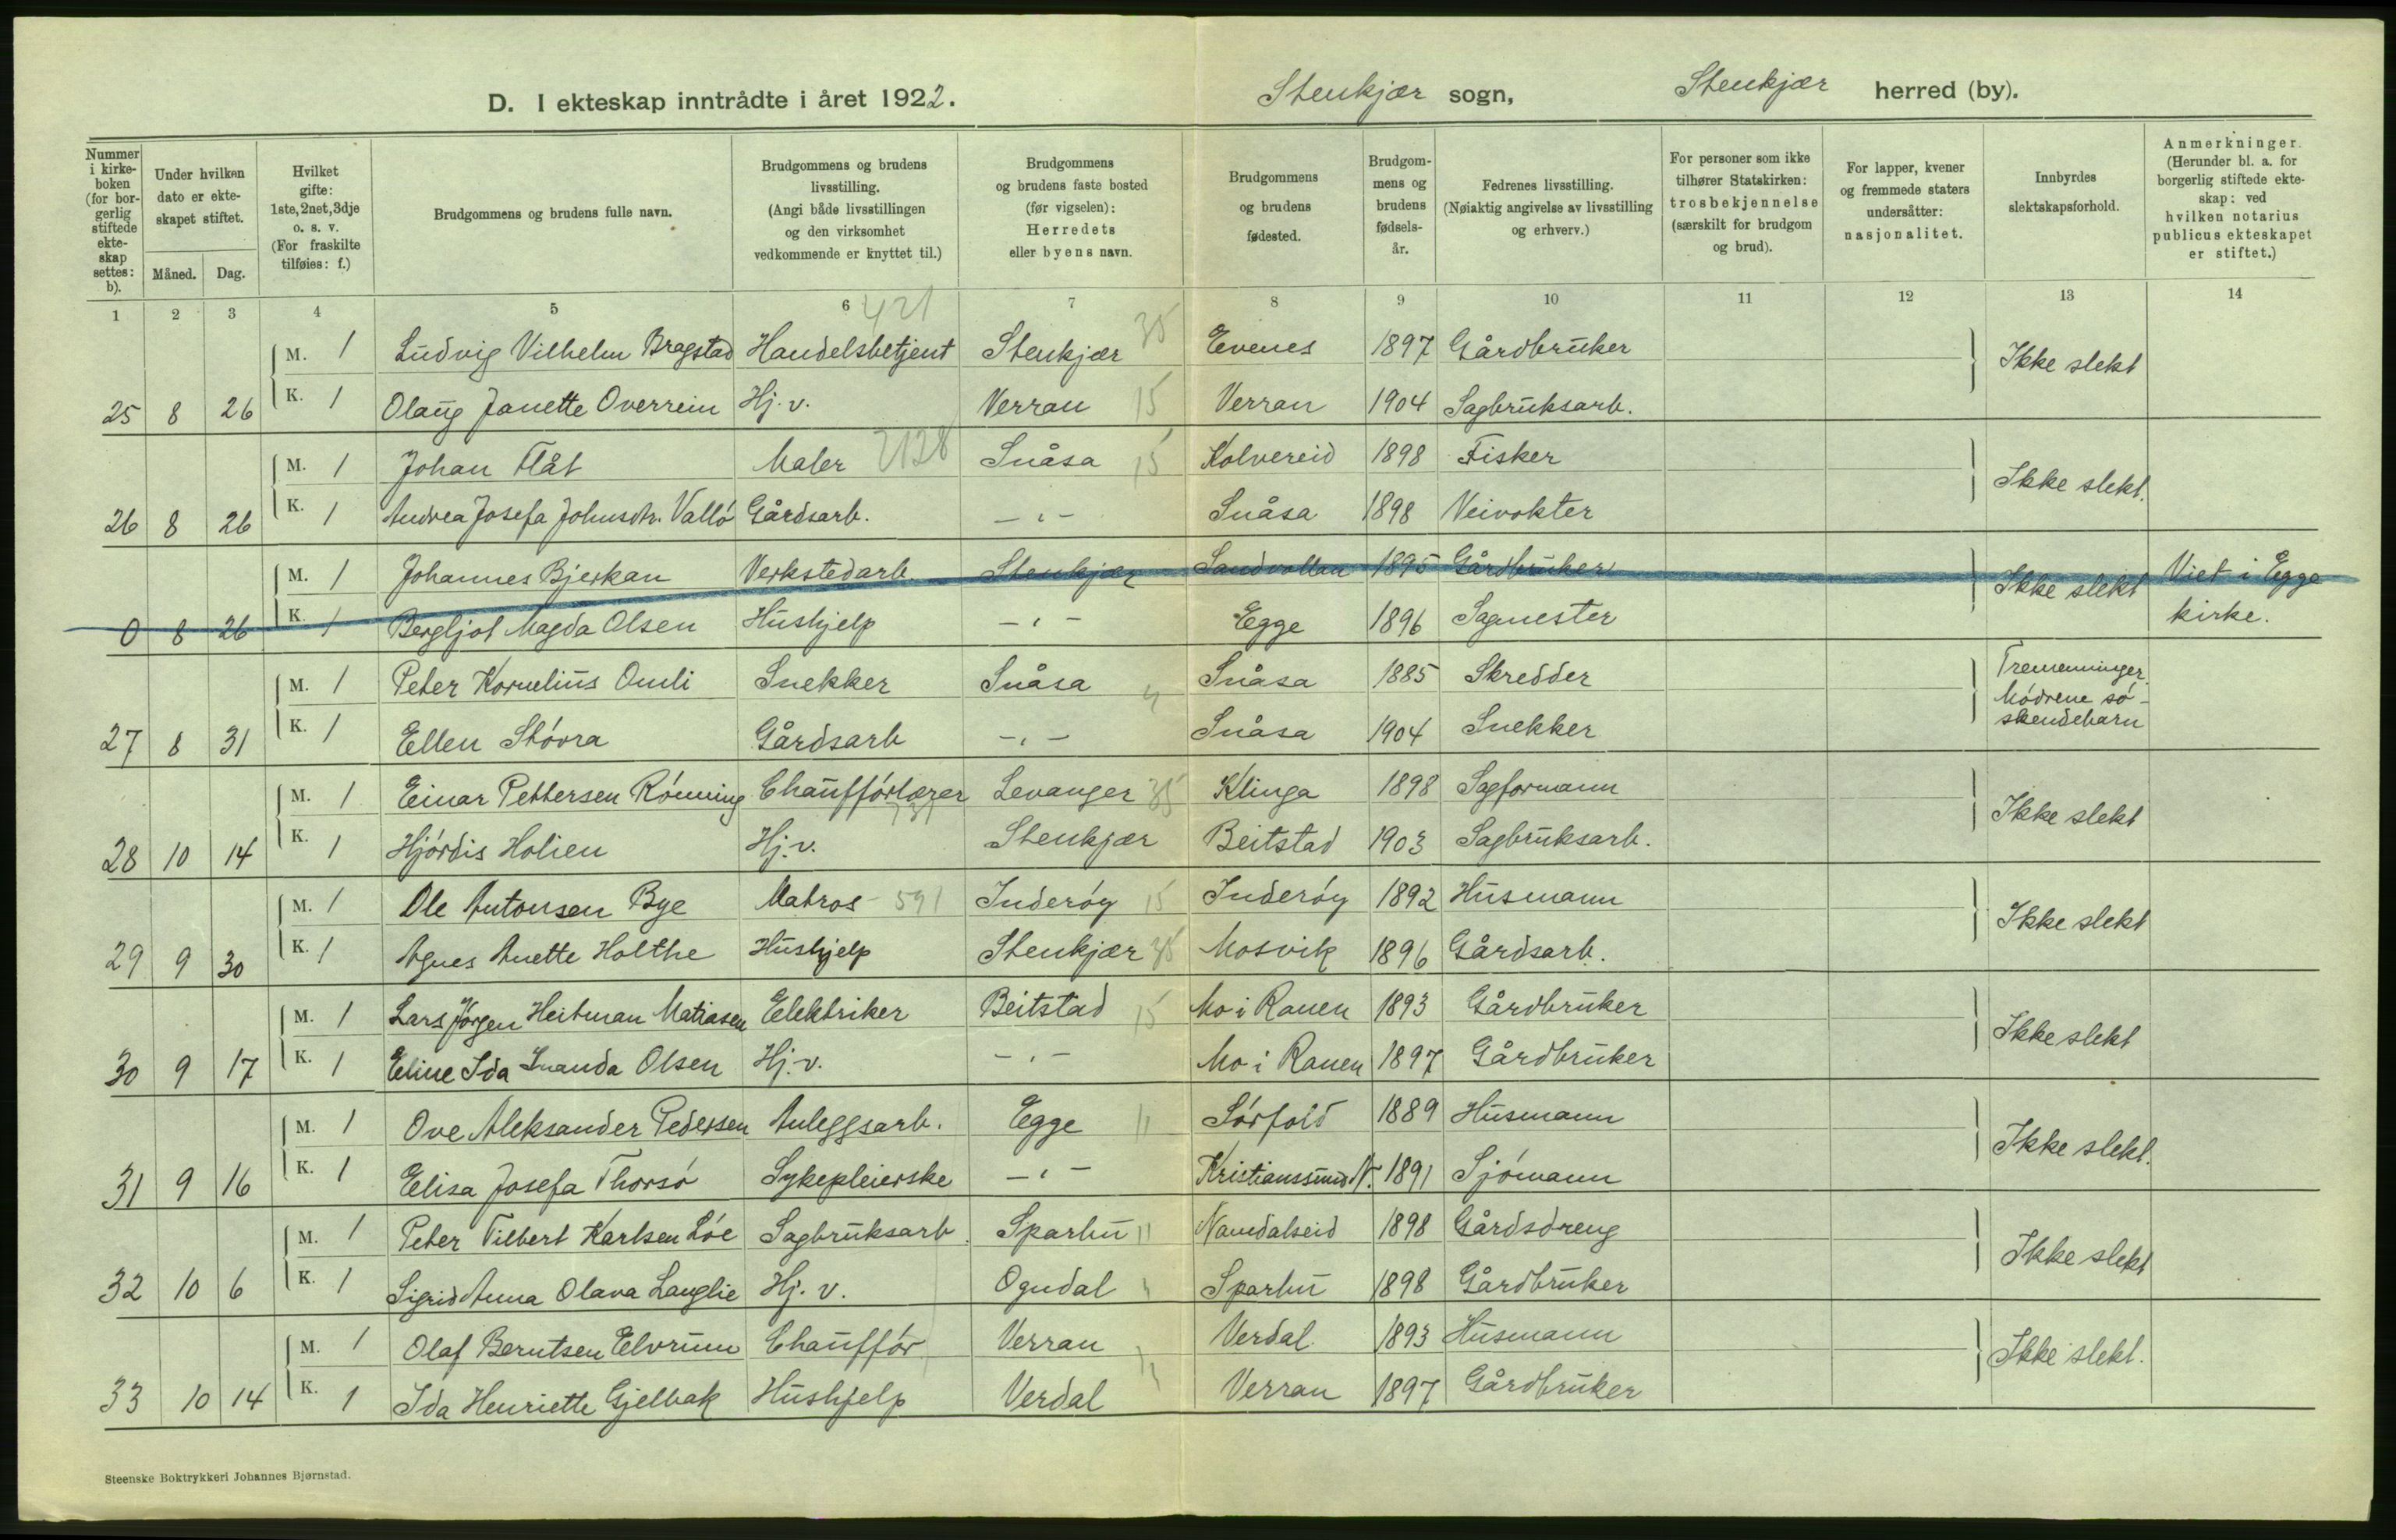 D. I ekteskap inntrådte i året 1922. Stenkjær sogn, Stenkjær herred (by).
Nummer i kirkeboken (for borgerlig stiftede ekteskap settes: b). | Under hvilken dato er ekteskapet stiftet. Måned. Dag. | Hvilket gifte: 1ste, 2net, 3dje o. s. v. (For fraskilte tilføies: f.) | Brudgommens og brudens fulle navn. | Brudgommens og brudens livsstilling. (Angi både livsstillingen og den virksomhet vedkommende er knyttet til.) | Brudgommens og brudens faste bosted (før vigselen): Herredets eller byens navn. | Brudgommens og brudens fødested. | Brudgommens og brudens fødselsår. | Fedrenes livsstilling. (Nøiaktig angivelse av livsstilling og erhverv.) | For personer som ikke tilhører Statskirken: trosbekjennelse (særskilt for brudgom og brud). | For lapper, kvener og fremmede staters undersåtter: nasjonalitet. | Innbyrdes slektskapsforhold. | Anmerkninger. (Herunder bl. a. for borgerlig stiftede ekteskap: ved hvilken notarius publicus ekteskapet er stiftet.)
1 2 3 4 5 6 7 8 9 10 11 12 13 14
421
M. 1 Ludvig Vilhelm Bragstad Handelsbetjent Stenkjær 35 Evenes 1897 Gårdbruker Ikke slekt
25 8 26 K. 1 Olaug Janette Overrein Hj. v. Verran 15 Verran 1904 Sagbruksarb.
M. 1 Johan Flåt Maler 2128 Snåsa 15 Kolvereid 1898 Fisker Ikke slekt.
26 8 26 K. 1 Andrea Josefa Johnsdtr. Vallö Gårdsarb. -"- Snåsa 1898 Veivokter
M. 1 Johannes Bjerkan Verkstedarb. Stenkjær Sandvollan 1895 Gårdbruker Ikke slekt Viet i Egge
0 8 26 K. 1 Bergljot Magda Olsen Hushjelp -"- Egge 1896 Sagmester kirke.
M. 1 Peter Kornelius Omli Snekker Snåsa Snåsa 1885 Skredder Tremenninger. Mödrene söskendebarn
27 8 31 K. 1 Ellen Stövra Gårdsarb -"- Snåsa 1904 Snekker
M. 1 Einar Pettersen Rönning Chauffförlærer 731 Levanger 35 Klinga 1898 Sagformann Ikke slekt
28 10 14 K. 1 Hjördis Holien Hj. v. Stenkjær Beitstad 1903 Sagbruksarb.
M. 1 Ole Antonsen Bye Matros 591 Inderöy 15 Inderöy 1892 Husmann Ikke slekt
29 9 30 K. 1 Agnes Anette Holthe Hushjelp Stenkjær 35 Mosvik 1896 Gårdsarb.
M. 1 Lars Jörgen Heitman Matiasen Elektriker Beitstad 15 Mo i Ranen 1893 Gårdbruker Ikke slekt
30 9 17 K. 1 Eline Ida Inanda Olsen Hj. v. -"- Mo i Ranen 1897 Gårdbruker
M. 1 Ove Aleksander Pedersen Anleggsarb. Egge 11 Sörfold 1889 Husmann Ikke slekt.
31 9 16 K. 1 Elisa Josefa Thorsö Sykepleierske -"- Kristianssund N. 1891 Sjömann
M. 1 Peter Tilbert Karlsen Löe Sagbruksarb. Sparbu 11 Namdalseid 1898 Gårdsdreng Ikke slekt
32 10 6 K. 1 Sigrid Anna Olava Langlie Hj. v. Ogndal Sparbu 1898 Gårdbruker
M. 1 Olaf Berntsen Elvrum Chaufför Verran Verdal 1893 Husmann Ikke slekt.
33 10 14 K. 1 Ida Henriette Gjelbak Hushjelp Verdal Verran 1897 Gårdbruker
Steenske Boktrykkeri Johannes Bjørnstad.